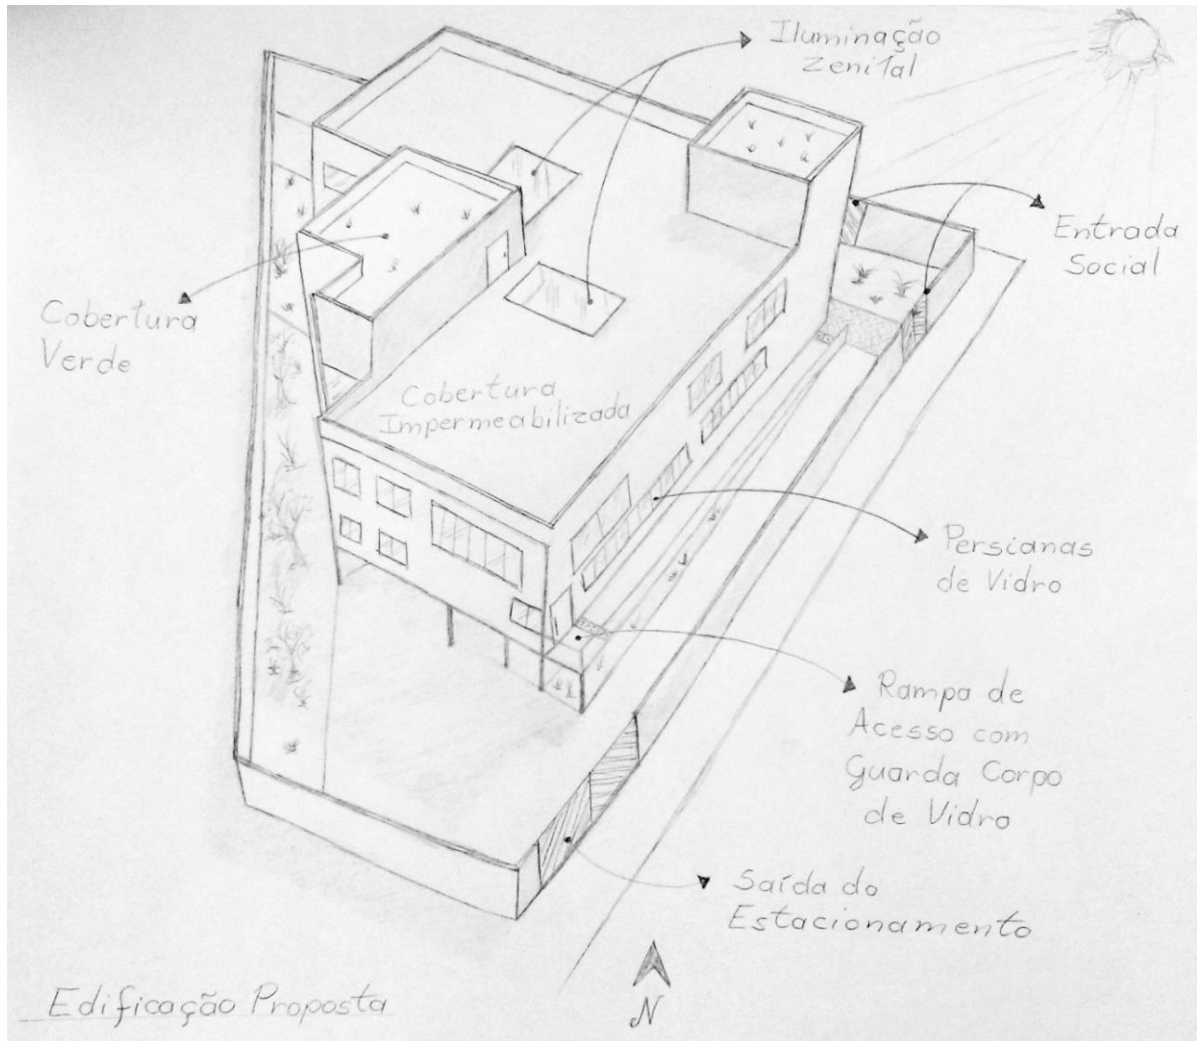 Iluminação
Zenital
Entrada
Social
Cobertura
Verde
Cobertura
Impermeabilizada
Persianas
de Vidro
Rampa de
Acesso com
Guarda Corpo
de Vidro
Saída do
Estacionamento
N
Edificação Proposta